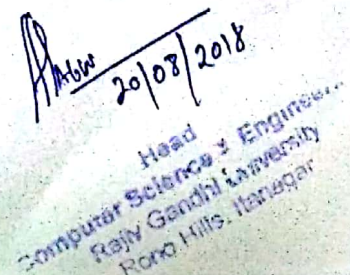 20/08/2018
Head
Computer Science & Engineer
Rajiv Gandhi University
Rono Hills, Itanagar